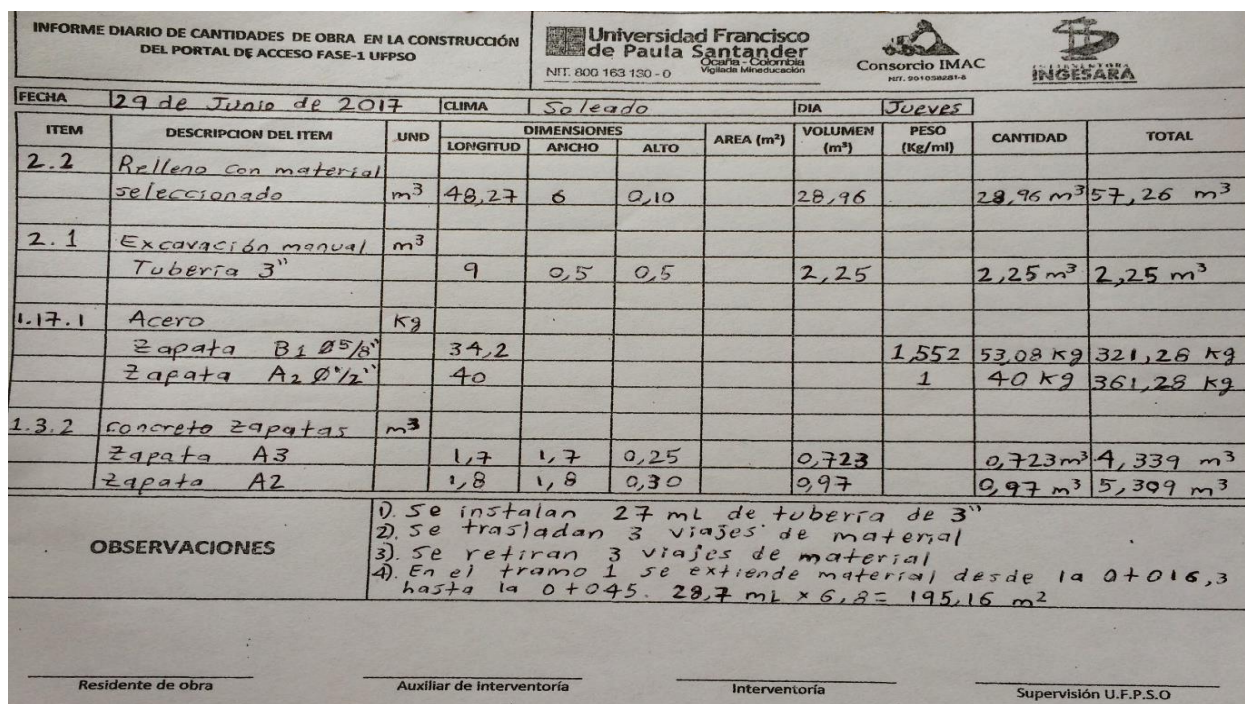 INFORME DIARIO DE CANTIDADES DE OBRA EN LA CONSTRUCCIÓN
DEL PORTAL DE ACCESO FASE-1 UFPSO
Universidad Francisco
de Paula Santander
Ocaña - Colombia
Vigilada Mineducación
NIT. 800 163 130 - 0
Consorcio IMAC
NIT. 901058281-6
INTERVENTORA
INGESARA
FECHA 29 de Junio de 2017 CLIMA Soleado DIA Jueves
ITEM DESCRIPCION DEL ITEM UND DIMENSIONES AREA (m²) VOLUMEN (m³) PESO (Kg/ml) CANTIDAD TOTAL
LONGITUD ANCHO ALTO
2.2 Relleno con material
seleccionado m³ 48,27 6 0,10 28,96 28,96 m³ 57,26 m³
2.1 Excavación manual m³
Tubería 3" 9 0,5 0,5 2,25 2,25 m³ 2,25 m³
1.17.1 Acero Kg
Zapata B1 Ø5/8" 34,2 1,552 53,08 Kg 321,28 Kg
Zapata A2 Ø1/2" 40 1 40 Kg 361,28 Kg
1.3.2 concreto zapatas m³
Zapata A3 1,7 1,7 0,25 0,723 0,723 m³ 4,339 m³
Zapata A2 1,8 1,8 0,30 0,97 0,97 m³ 5,309 m³
OBSERVACIONES
1). Se instalan 27 mL de tubería de 3"
2). Se trasladan 3 viajes de material
3). Se retiran 3 viajes de material
4). En el tramo 1 se extiende material desde la 0+016,3
hasta la 0+045. 28,7 mL x 6,8 = 195,16 m²
Residente de obra Auxiliar de interventoría Interventoría Supervisión U.F.P.S.O